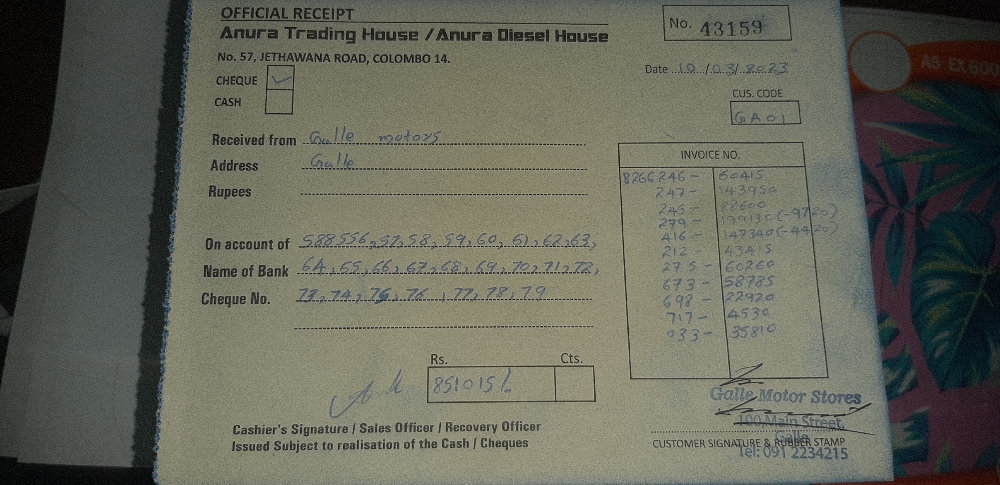 OFFICIAL RECEIPT
No. 43159
Anura Trading House / Anura Diesel House
No. 57, JETHAWANA ROAD, COLOMBO 14.
Date 10/03/2023
CHEQUE ✓
CASH
CUS. CODE
GA01
Received from Galle motors
Address Galle
Rupees
INVOICE NO.
8266246 - 60415
247 - 143950
245 - 88600
299 - 199130 (-9720)
416 - 147340 (-4420)
212 - 43415
275 - 60260
673 - 58785
698 - 22920
717 - 4530
033 - 35810
On account of 588556, 57, 58, 59, 60, 61, 62, 63,
Name of Bank 64, 65, 66, 67, 68, 69, 70, 71, 72,
Cheque No. 73, 74, 75, 76, 77, 78, 79
Rs. Cts.
851015/
Cashier's Signature / Sales Officer / Recovery Officer
Issued Subject to realisation of the Cash / Cheques
Galle Motor Stores
100, Main Street,
Galle
CUSTOMER SIGNATURE & RUBBER STAMP
Tel: 091 2234215
A5 EX 600